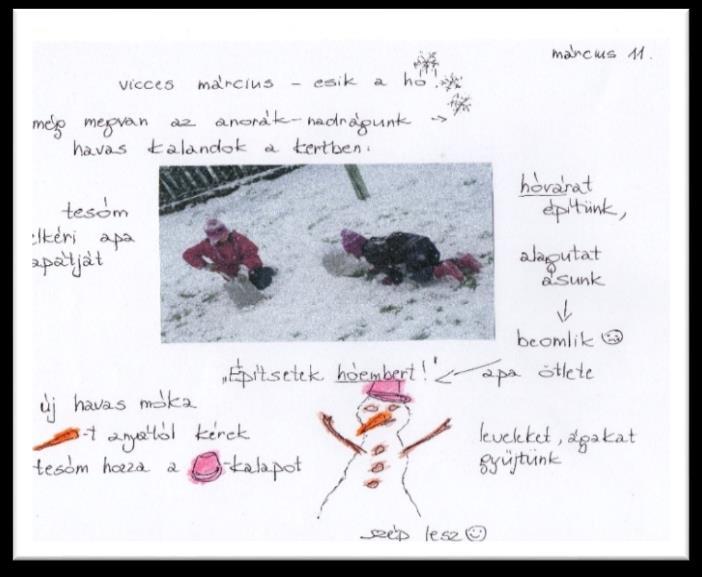 március 11.
vicces március – esik a hó
még megvan az anorák-nadrágunk →
havas kalandok a kertben.
tesóm
elkéri apa
lapátját
hóvárat
építünk,
alagutat
ásunk
↓
beomlik ☹
„Építsetek hóembert!" ← apa ötlete
új havas móka
-t anyától kérek
tesóm hozza a -kalapot
leveleket, ágakat
gyűjtünk
szép lesz ☺